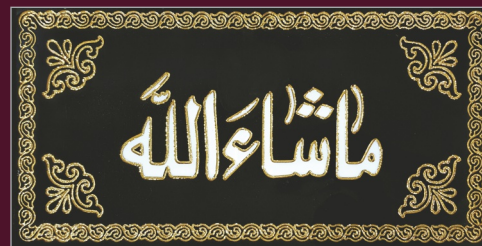 ماشاءَ اللّٰه